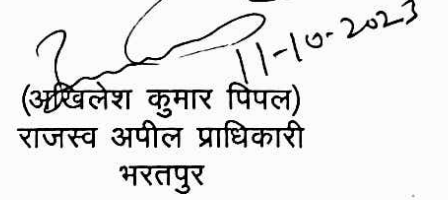 11-10-2023
(अखिलेश कुमार पिपल)
राजस्व अपील प्राधिकारी
भरतपुर